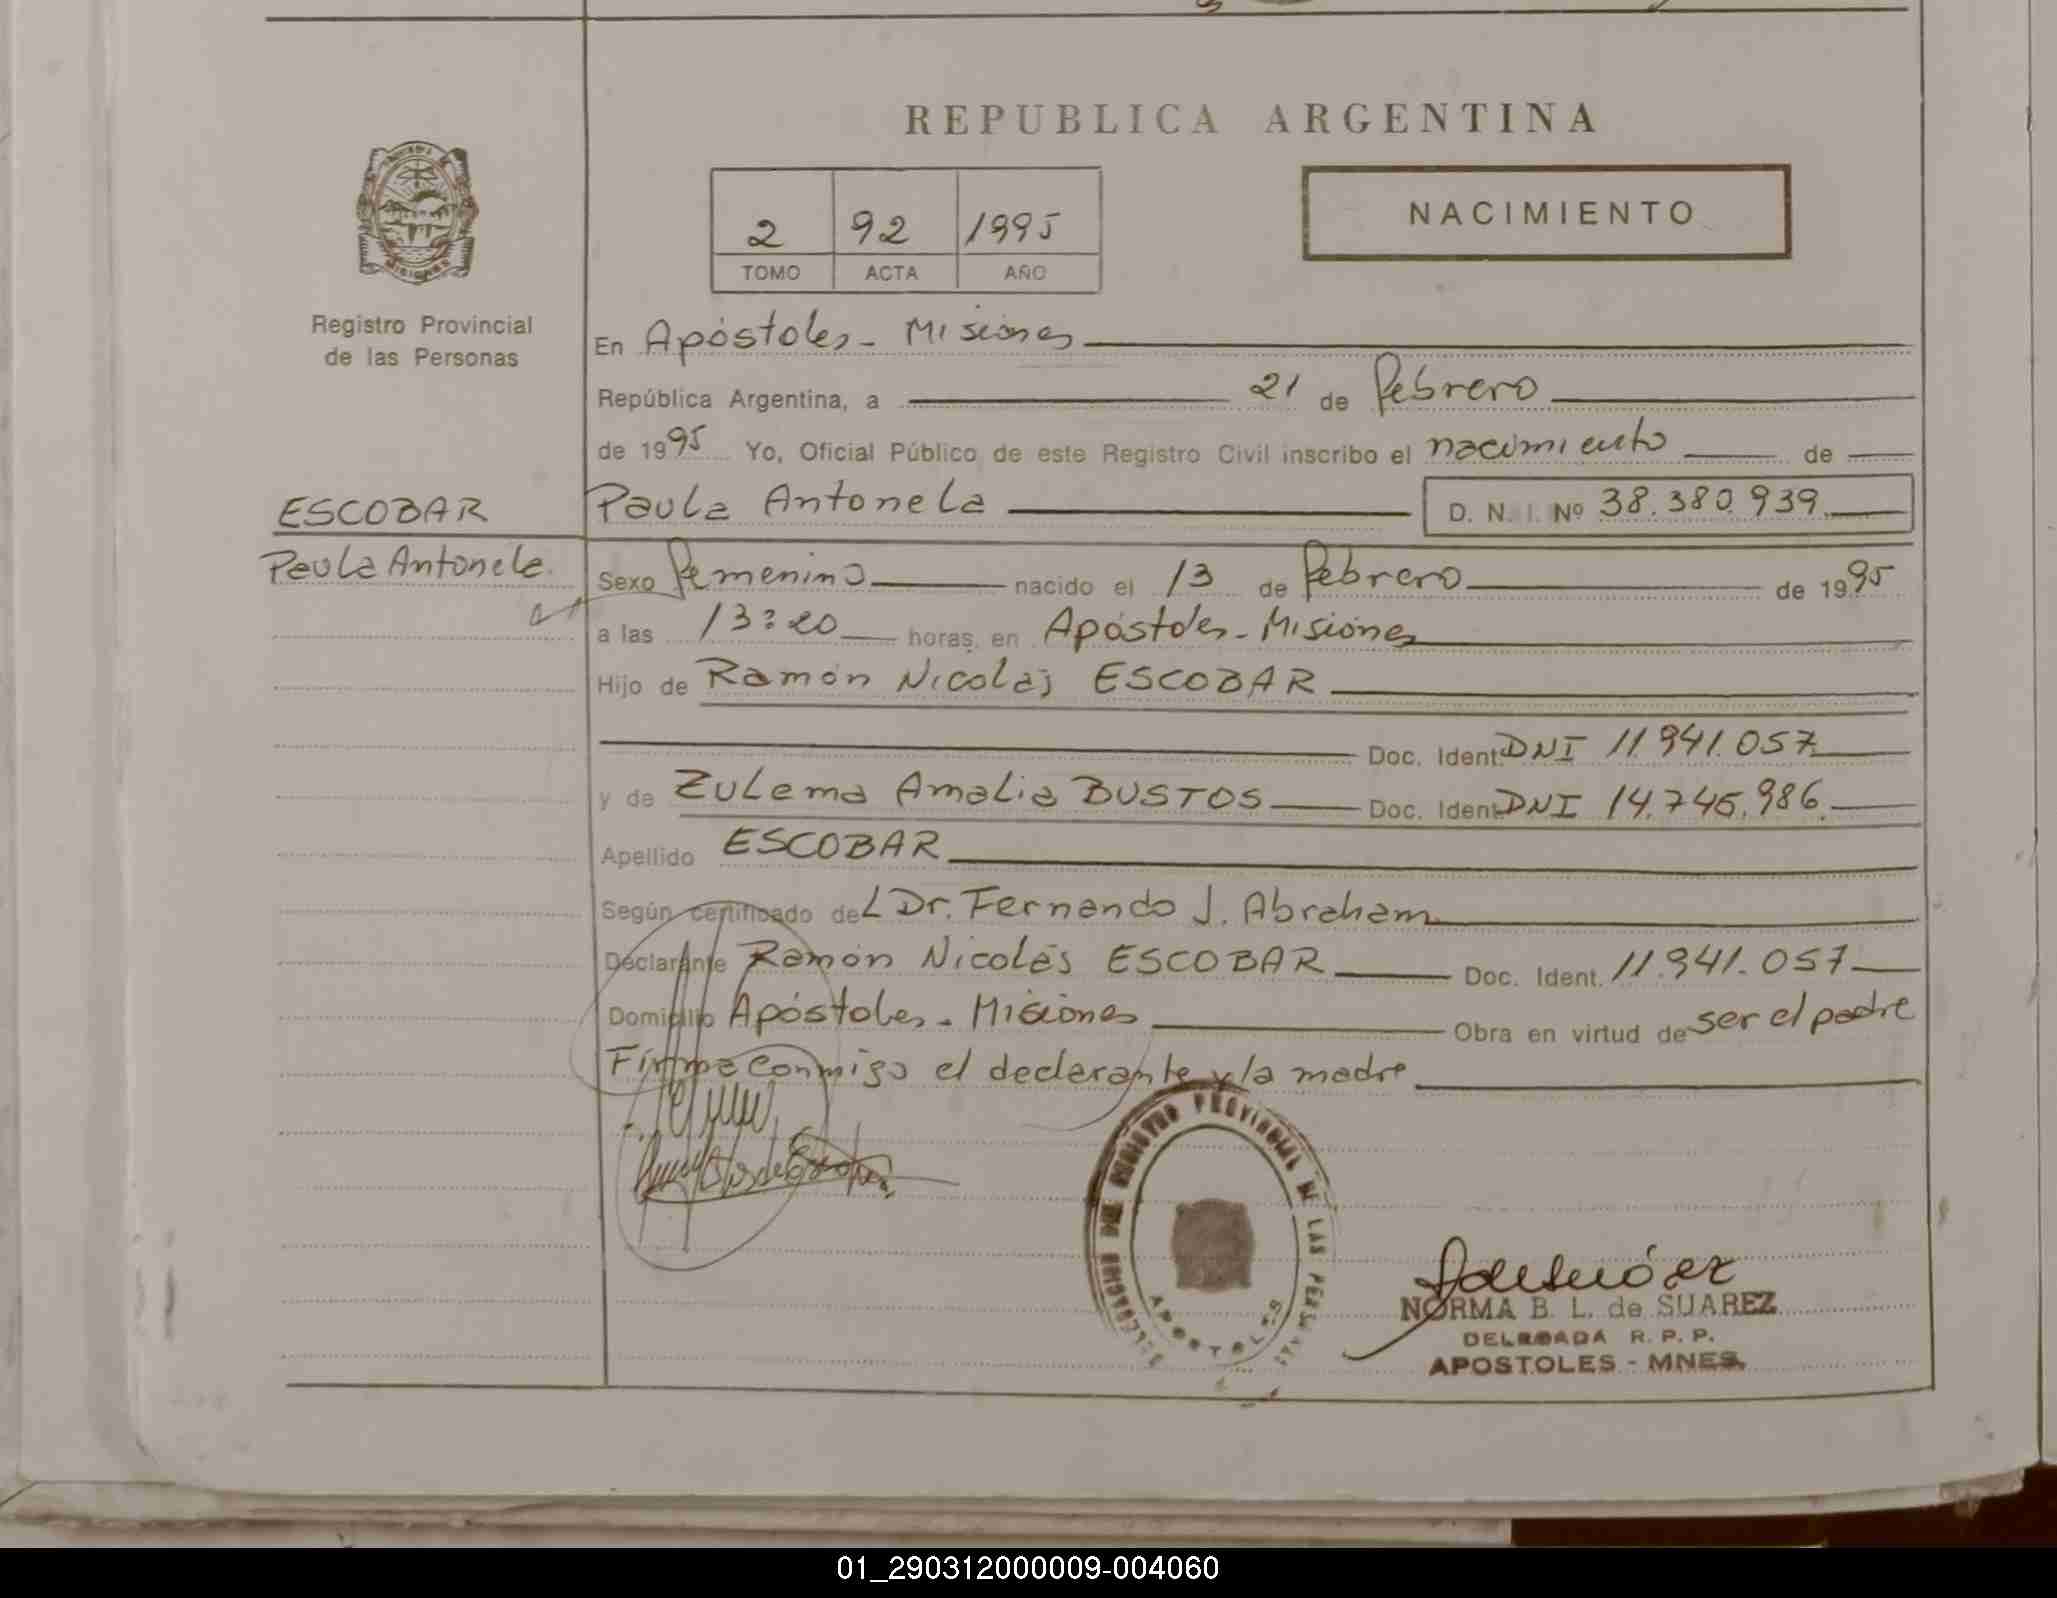 REPUBLICA ARGENTINA
2 92 1995
TOMO ACTA AÑO
NACIMIENTO
Registro Provincial
de las Personas
En Apóstoles - Misiones
República Argentina, a 21 de febrero
de 1995 Yo, Oficial Público de este Registro Civil inscribo el nacimiento de
ESCOBAR
Paula Antonela
Paula Antonela D. N. I. Nº 38.380.939
Sexo femenino nacido el 13 de febrero de 1995
a las 13:20 horas, en Apóstoles - Misiones
Hijo de Ramón Nicolás ESCOBAR
Doc. Ident. DNI 11.941.057
y de Zulema Amalia BUSTOS Doc. Ident. DNI 14.745.986
Apellido ESCOBAR
Según certificado del Dr. Fernando J. Abraham
Declarante Ramón Nicolás ESCOBAR Doc. Ident. 11.941.057
Domicilio Apóstoles - Misiones Obra en virtud de ser el padre
Firma conmigo el declarante y la madre
REGISTRO PROVINCIAL DE LAS PERSONAS
APOSTOLES
NORMA B. L. de SUAREZ
DELEGADA R. P. P.
APOSTOLES - MNES.
01_290312000009-004060